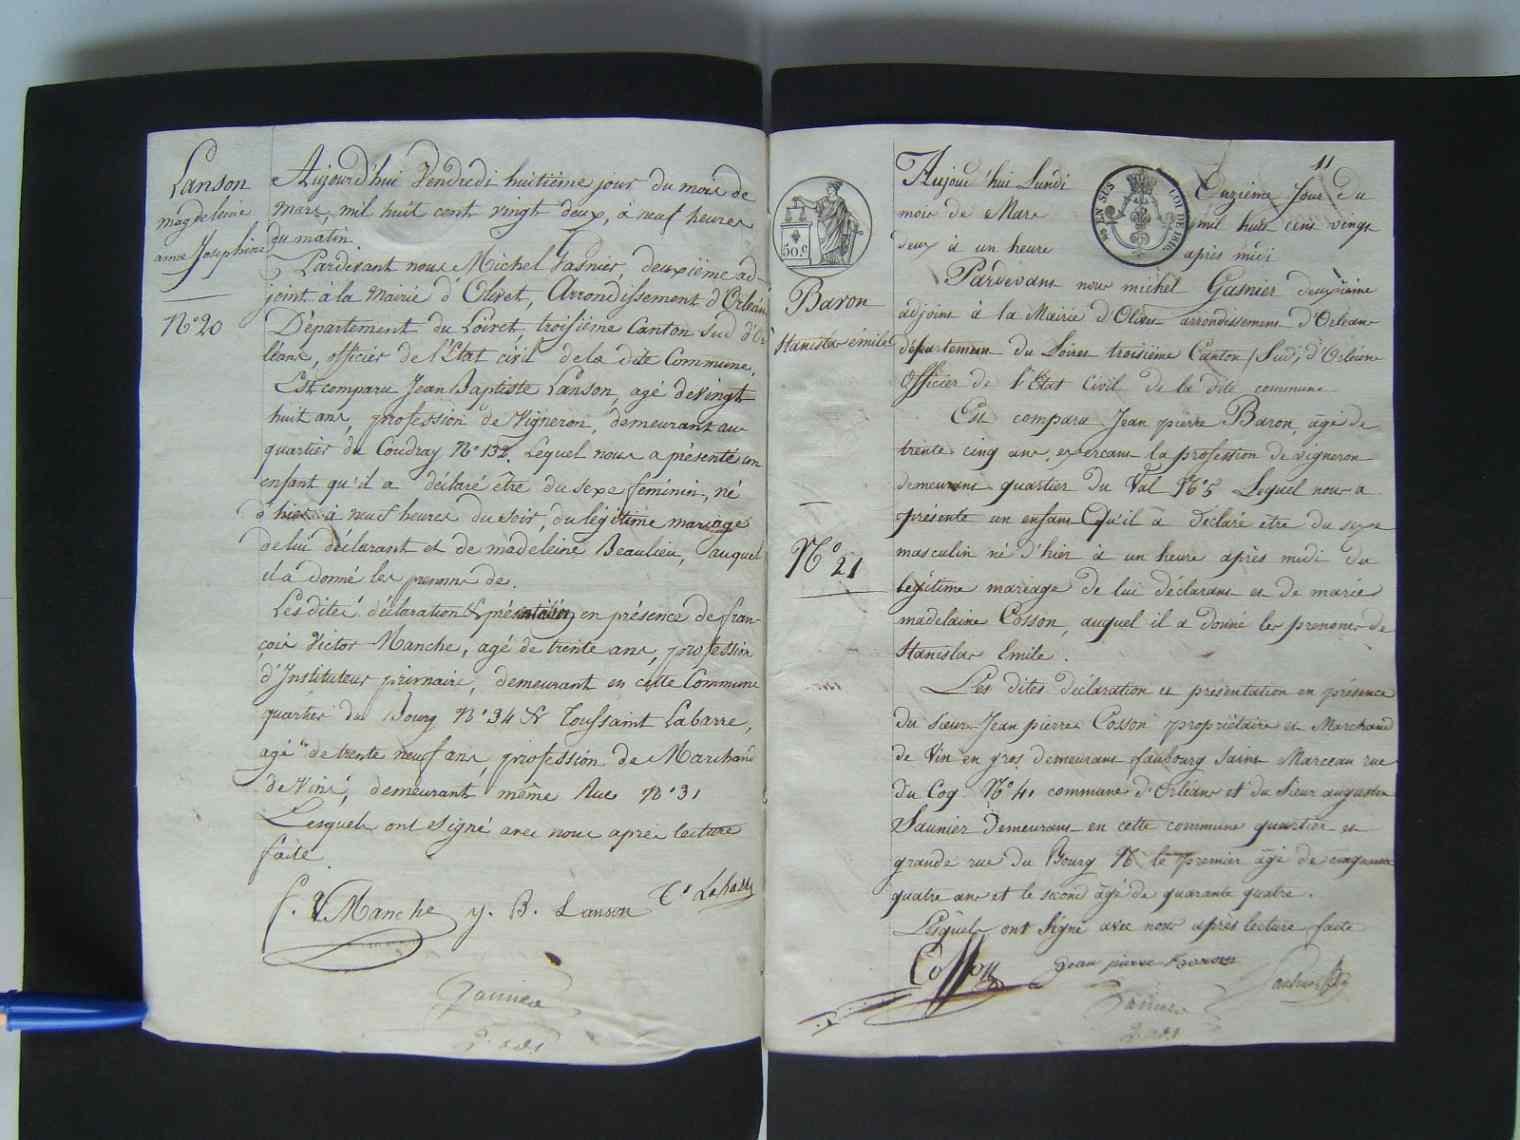 Lanson
magdeleine
anne Josephine
N° 20
Aujourd'hui Vendredi huitième jour du mois de
Mars, mil huit cent vingt deux, à neuf heures
du matin.
Pardevant nous Michel Gasnier, deuxième ad-
joint à la Mairie d'Olivet, Arrondissement d'Orléans
Département du Loiret, troisième Canton Sud d'Or
léans, officier de l'Etat civil de la dite Commune,
Est comparu Jean Baptiste Lanson, agé de vingt
huit ans, profession de Vigneron, demeurant au
quartier du Coudray N° 132. Lequel nous a présenté un
enfant qu'il a déclaré être du sexe féminin, né
hier à neuf heures du soir, du légitime mariage
de lui déclarant et de madeleine Beaulieu, auquel
il a donné les prenoms de.
Les dites déclaration & présentation, en présence de fran-
çois Victor Manche, agé de trente ans, profession
d'Instituteur primaire, demeurant en cette Commune
quartier du Bourg N° 34 & Toussaint Labarre,
agé de trente neuf ans, profession de Marchand
de Vins, demeurant même Rue N° 31
Lesquels ont signé avec nous après lecture
faite.
f. V Manche J. B. Lanson Labarre
Gasnier
11
50.c
EN SUS
LOI DE 1816
Baron
Stanislas émile
N° 21
Aujourd'hui Lundi Onzième Jour du
mois de Mars mil huit cent vingt
deux à un heure après midi
Pardevant nous michel Gasnier deuxième
adjoint à la Mairie d'Olivet arrondissement d'Orleans
département du Loiret troisième Canton (Sud) d'Orléans
Officier de l'Etat Civil de la dite commune
Est comparu Jean pierre Baron, agé de
trente cinq ans, exercant la profession de vigneron
demeurant quartier du Val N° 5 Lequel nous a
présenté un enfant Qu'il a Déclaré être du sexe
masculin né d'hier à un heure après midi du
legitime mariage de lui déclarant et de marie
madelaine Cosson, auquel il a donné les prenoms de
Stanislas Emile.
Les dites déclaration et présentation en présence
du sieur Jean pierre Cosson propriétaire et Marchand
de Vin en gros demeurant faubourg Saint Marceau rue
du Coq N° 41 commune d'Orléans et du Sieur augustin
Saunier Demeurant en cette commune quartier et
grande rue du Bourg N. le premier agé de cinquante
quatre ans et le second agé de quarante quatre.
Lesquels ont Signé avec nous après lecture faite
Cosson Jean pierre Baron Saunier
Gasnier